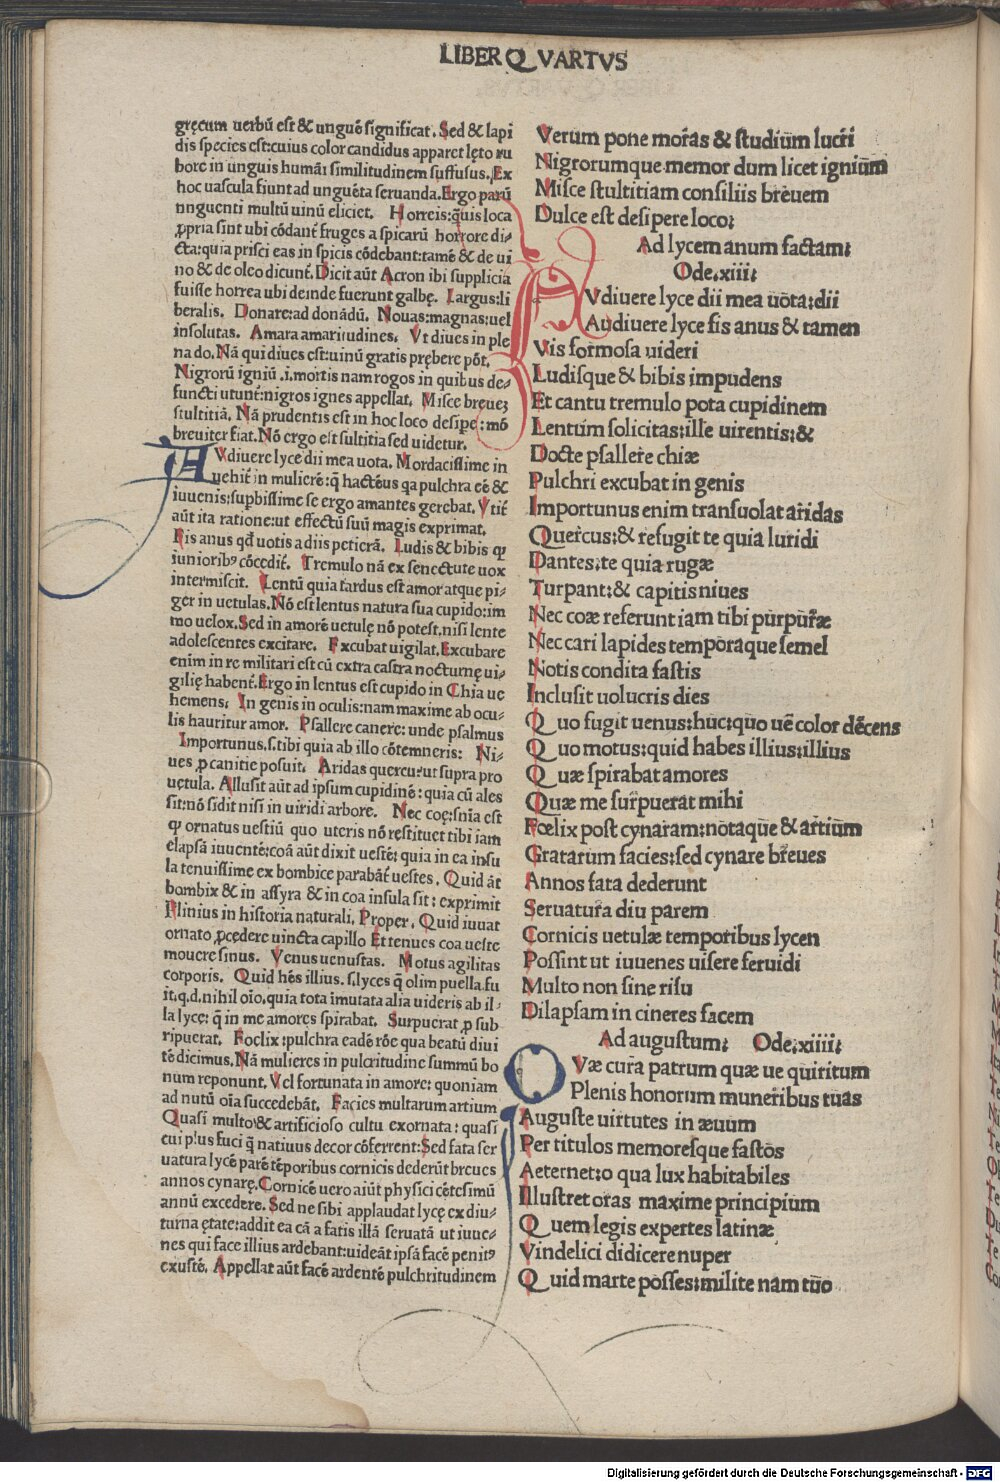 LIBER QVARTVS
gręcum uerbū est & unguē significat. Sed & lapi
dis species est: cuius color candidus apparet lęto ru
bore in unguis humāi similitudinem suffusus. Ex
hoc uascula fiunt ad unguēta seruanda. Ergo parū
nnguenti multū uinū eliciet. Horreis: q̄uis loca
ꝓpria sint ubi cōdant̄ fruges a spicarū horrore di-
cta: quia prisci eas in spicis cōdebant: tamē & de ui
no & de oleo dicunt. Dicit aūt Acron ibi supplicia
fuisse horrea ubi deinde fuerunt galbę. Largus: li
beralis. Donare: ad donādū. Nouas: magnas: uel
insolutas. Amara amaritudines. Vt diues in ple
na do. Nā qui diues est: uinū gratis prębere pōt.
Nigrorū igniū .i. mortis nam rogos in quibus de-
functi utunt̄: nigros ignes appellat. Misce breuez
stultitiā. Nā prudentis est in hoc loco desipe: mō
breuiter fiat. Nō ergo est sultitia sed uidetur.
AVdiuere lyce dii mea uota. Mordacissime in
uehit̄ in mulierē: q̄ hactēus qa pulchra eē &
iuuenis: supbissime se ergo amantes gerebat. Vtit̄
aūt ita ratione: ut effectū suū magis exprimat.
Fis anus qđ uotis a diis petierā. Ludis & bibis qꝫ
iunioribꝰ cōcedit̄. Tremulo nā ex senectute uox
intermiscit. Lentū quia tardus est amor atque pi-
ger in uetulas. Nō est lentus natura sua cupido: im
mo uelox. Sed in amorē uetulę nō potest. nisi lente
adolescentes excitare. Excubat uigilat. Excubare
enim in re militari est cū extra castra nocturnę ui-
gilię habent̄. Ergo in lentus est cupido in Chia ue
hemens. In genis in oculis: nam maxime ab ocu-
lis hauritur amor. Psallere canere: unde psalmus
Importunus .s. tibi quia ab illo cōtemneris: Ni-
ues ꝓ canitie posuit. Aridas quercu: ut supra pro
uętula. Allusit aūt ad ipsum cupidinē: quia cū ales
sit: nō sidit nisi in uiridi arbore. Nec coę: snīa est
qꝫ ornatus uestiū quo uteris nō ręstituet tibi iam
elapsā iuuentē: coā aūt dixit uestē: quia in ea insu
la tenuissime ex bombice parabāt̄ uestes. Quid āt
bombix & in assyra & in coa insula sit: exprimit
Plinius in historia naturali. Proper. Quid iuuat
ornato ꝓcedere uincta capillo Et tenues coa ueste
mouere sinus. Venus uenustas. Motus agilitas
corporis. Quid hēs illius .s. lyces q̄ olim puella fu
it. q.d. nihil oīo. quia tota imutata alia uideris ab il-
la lyce: q̄ in me amores spirabat. Surpuerat ꝓ sub
ripuerat. Foelix: pulchra eadē rōe qua beatū diui
tē dicimus. Nā mulieres in pulcritudine summū bo
num reponunt. Vel fortunata in amore: quoniam
ad nutū oīa succedebāt. Facies multarum artium
Quasi multo & artificioso cultu exornata: quasi
cui plus fuci q̄ natiuus decor cōferrent: Sed fata ser
uatura lycē parē tēporibus cornicis dederūt breues
annos cynarę. Cornicē uero aiūt physici cētesimū
annū excedere. Sed ne sibi applaudat lycę ex diu-
turna ętate: addit ea cā a fatis illā seruatā ut iuue-
nes qui face illius ardebant: uideāt ipsā facē penitꝰ
exustē. Appellat aūt facē ardentē pulchritudinem
Verum pone moras & studium lucri
Nigrorumque memor dum licet ignium
Misce stultitiam consiliis breuem
Dulce est desipere loco:
Ad lycem anum factam:
Ode. xiii:
AVdiuere lyce dii mea uota: dii
Audiuere lyce fis anus & tamen
Vis formosa uideri
Ludisque & bibis impudens
Et cantu tremulo pota cupidinem
Lentum solicitas: ille uirentis: &
Docte psallere chiæ
Pulchri excubat in genis
Importunus enim transuolat aridas
Quercus: & refugit te quia luridi
Dantes: te quia rugæ
Turpant: & capitis niues
Nec coæ referunt iam tibi purpuræ
Nec cari lapides tempora que semel
Notis condita fastis
Inclusit uolucris dies
Quo fugit uenus: huc: quo uē color dēcens
Quo motus: quid habes illius: illius
Quæ spirabat amores
Quæ me surpuerat mihi
Fœlix post cynaram: notaque & artium
Gratarum facies: sed cynare breues
Annos fata dederunt
Seruatura diu parem
Cornicis uetulæ temporibus lycen
Possint ut iuuenes uisere feruidi
Multo non sine risu
Dilapsam in cineres facem
Ad augustum: Ode. xiiii:
QVæ cura patrum quæ ue quiritum
Plenis honorum muneribus tuas
Auguste uirtutes in æuum
Per titulos memoresque fastos
Aeternet: o qua lux habitabiles
Illustret oras maxime principium
Quem legis expertes latinæ
Vindelici didicere nuper
Quid marte posses: milite nam tuo
Digitalisierung gefördert durch die Deutsche Forschungsgemeinschaft - DFG